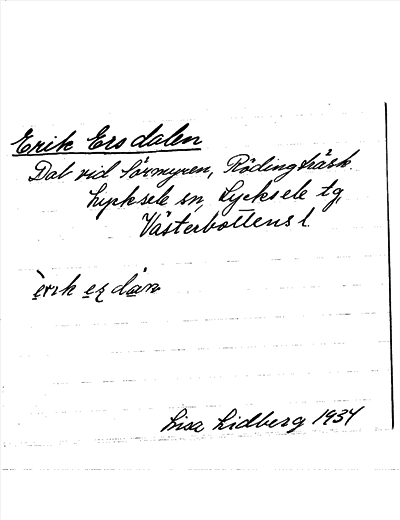 Erik Ersdalen
Dal vid Sörmyren, Rödingträsk.
Lycksele sn, Lycksele tg,
Västerbottens l.
èrik eʂ dàn
Lisa Lidberg 1934